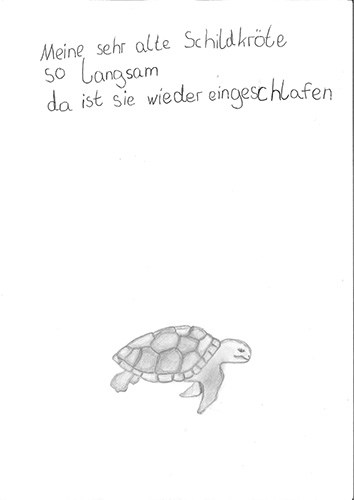 Meine sehr alte Schildkröte
so langsam
da ist sie wieder eingeschlafen